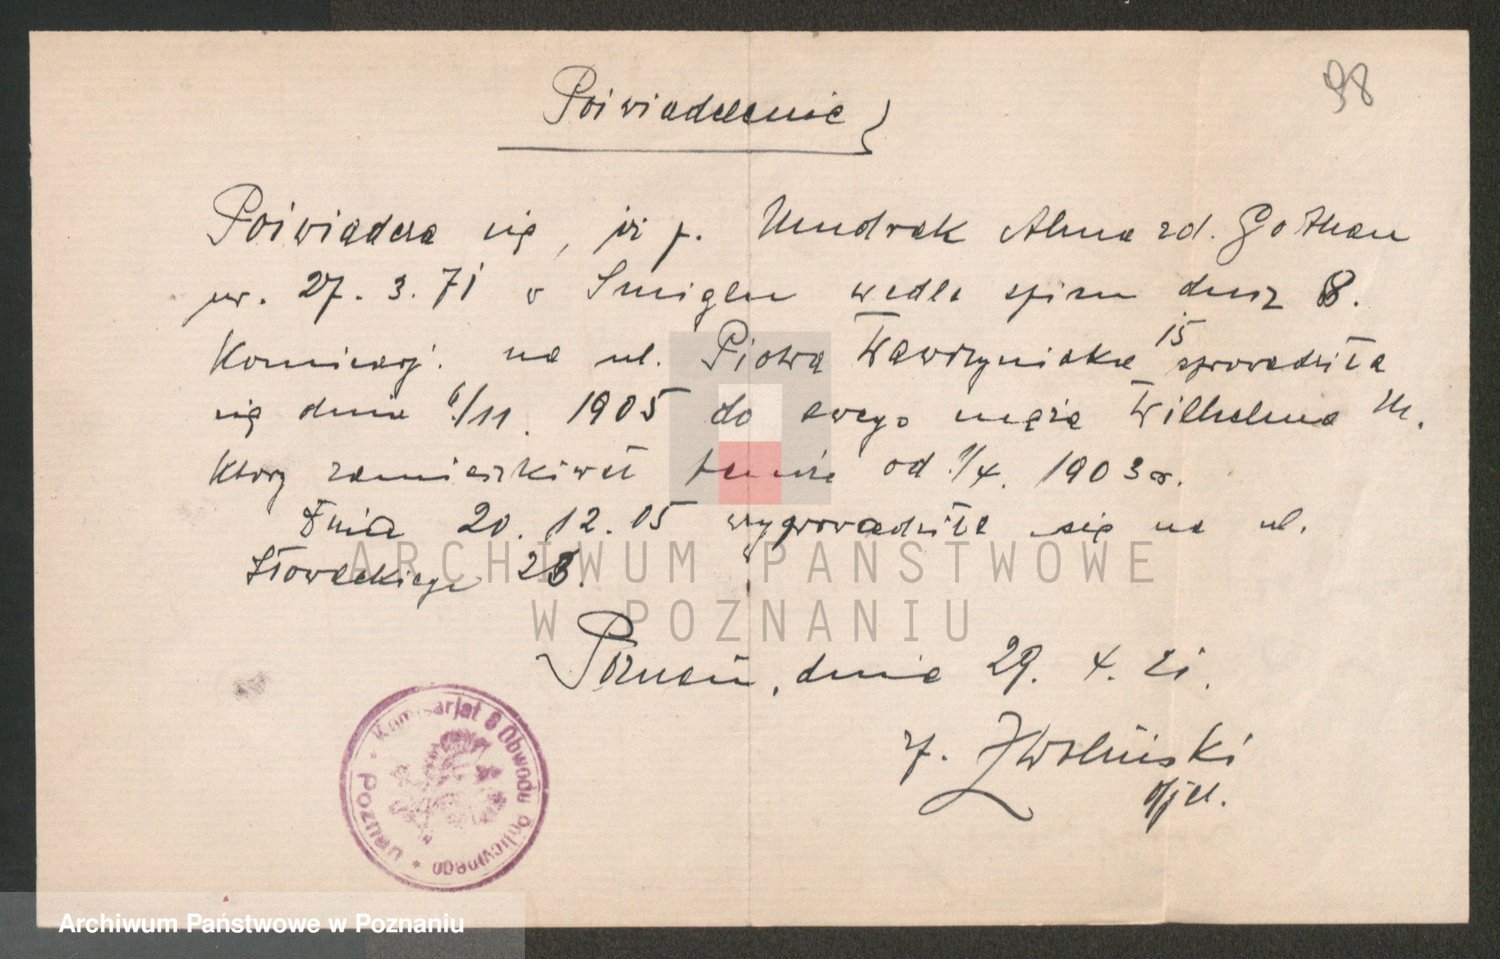 98
Poświadczenie
Poświadcza się, iż p. Mudrak Alma zd. Gothan
ur. 27. 3. 71 w Śmiglu wedle spisu dusz 8.
Komisarj. na ul. Piotra Wawrzyniaka 15 sprowadziła
się dnia 6/11. 1905 do swego męża Wilhelma M.
który zamieszkiwał tamże od 1/4. 1903 r.
Dnia 20. 12. 05 wyprowadziła się na ul.
Słowackiego 28.
Poznań, dnia 29. 4. 21.
Zwoliński
Komisarjat 8 Obwodu Policyjnego
Poznań
ARCHIWUM PAŃSTWOWE
W POZNANIU
Archiwum Państwowe w Poznaniu